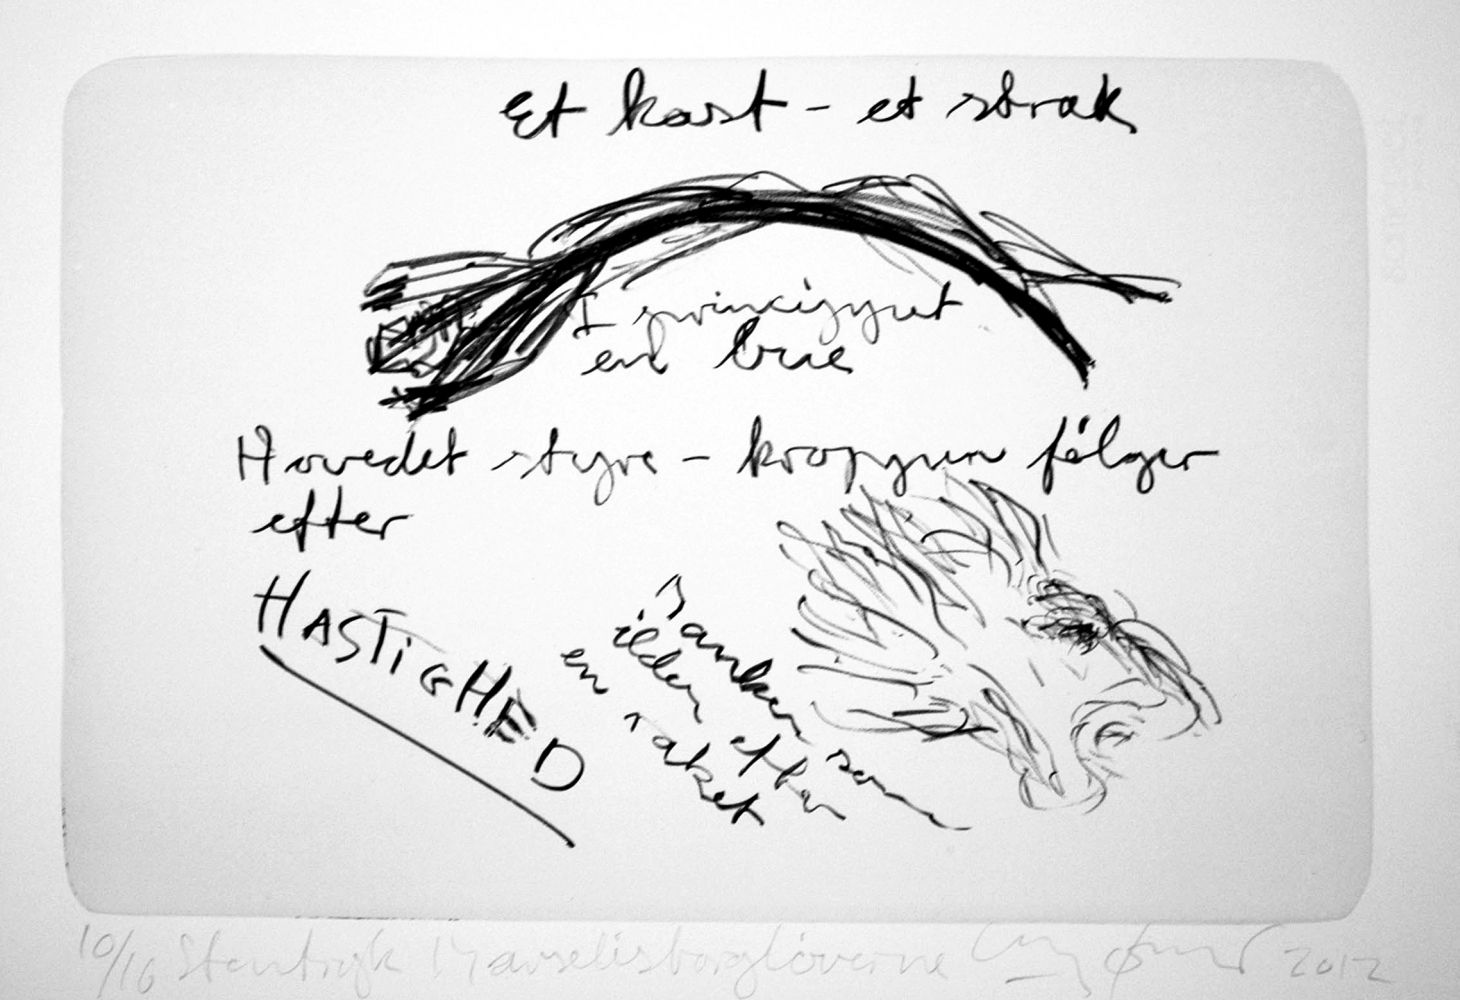 Et kast - et stræk
I princippet
en bue
Hovedet styre - kroppen følger
efter
HASTIGHED
Manken som
ilden efter
en raket
10/16 Stentryk Marselisborgløverne 2012